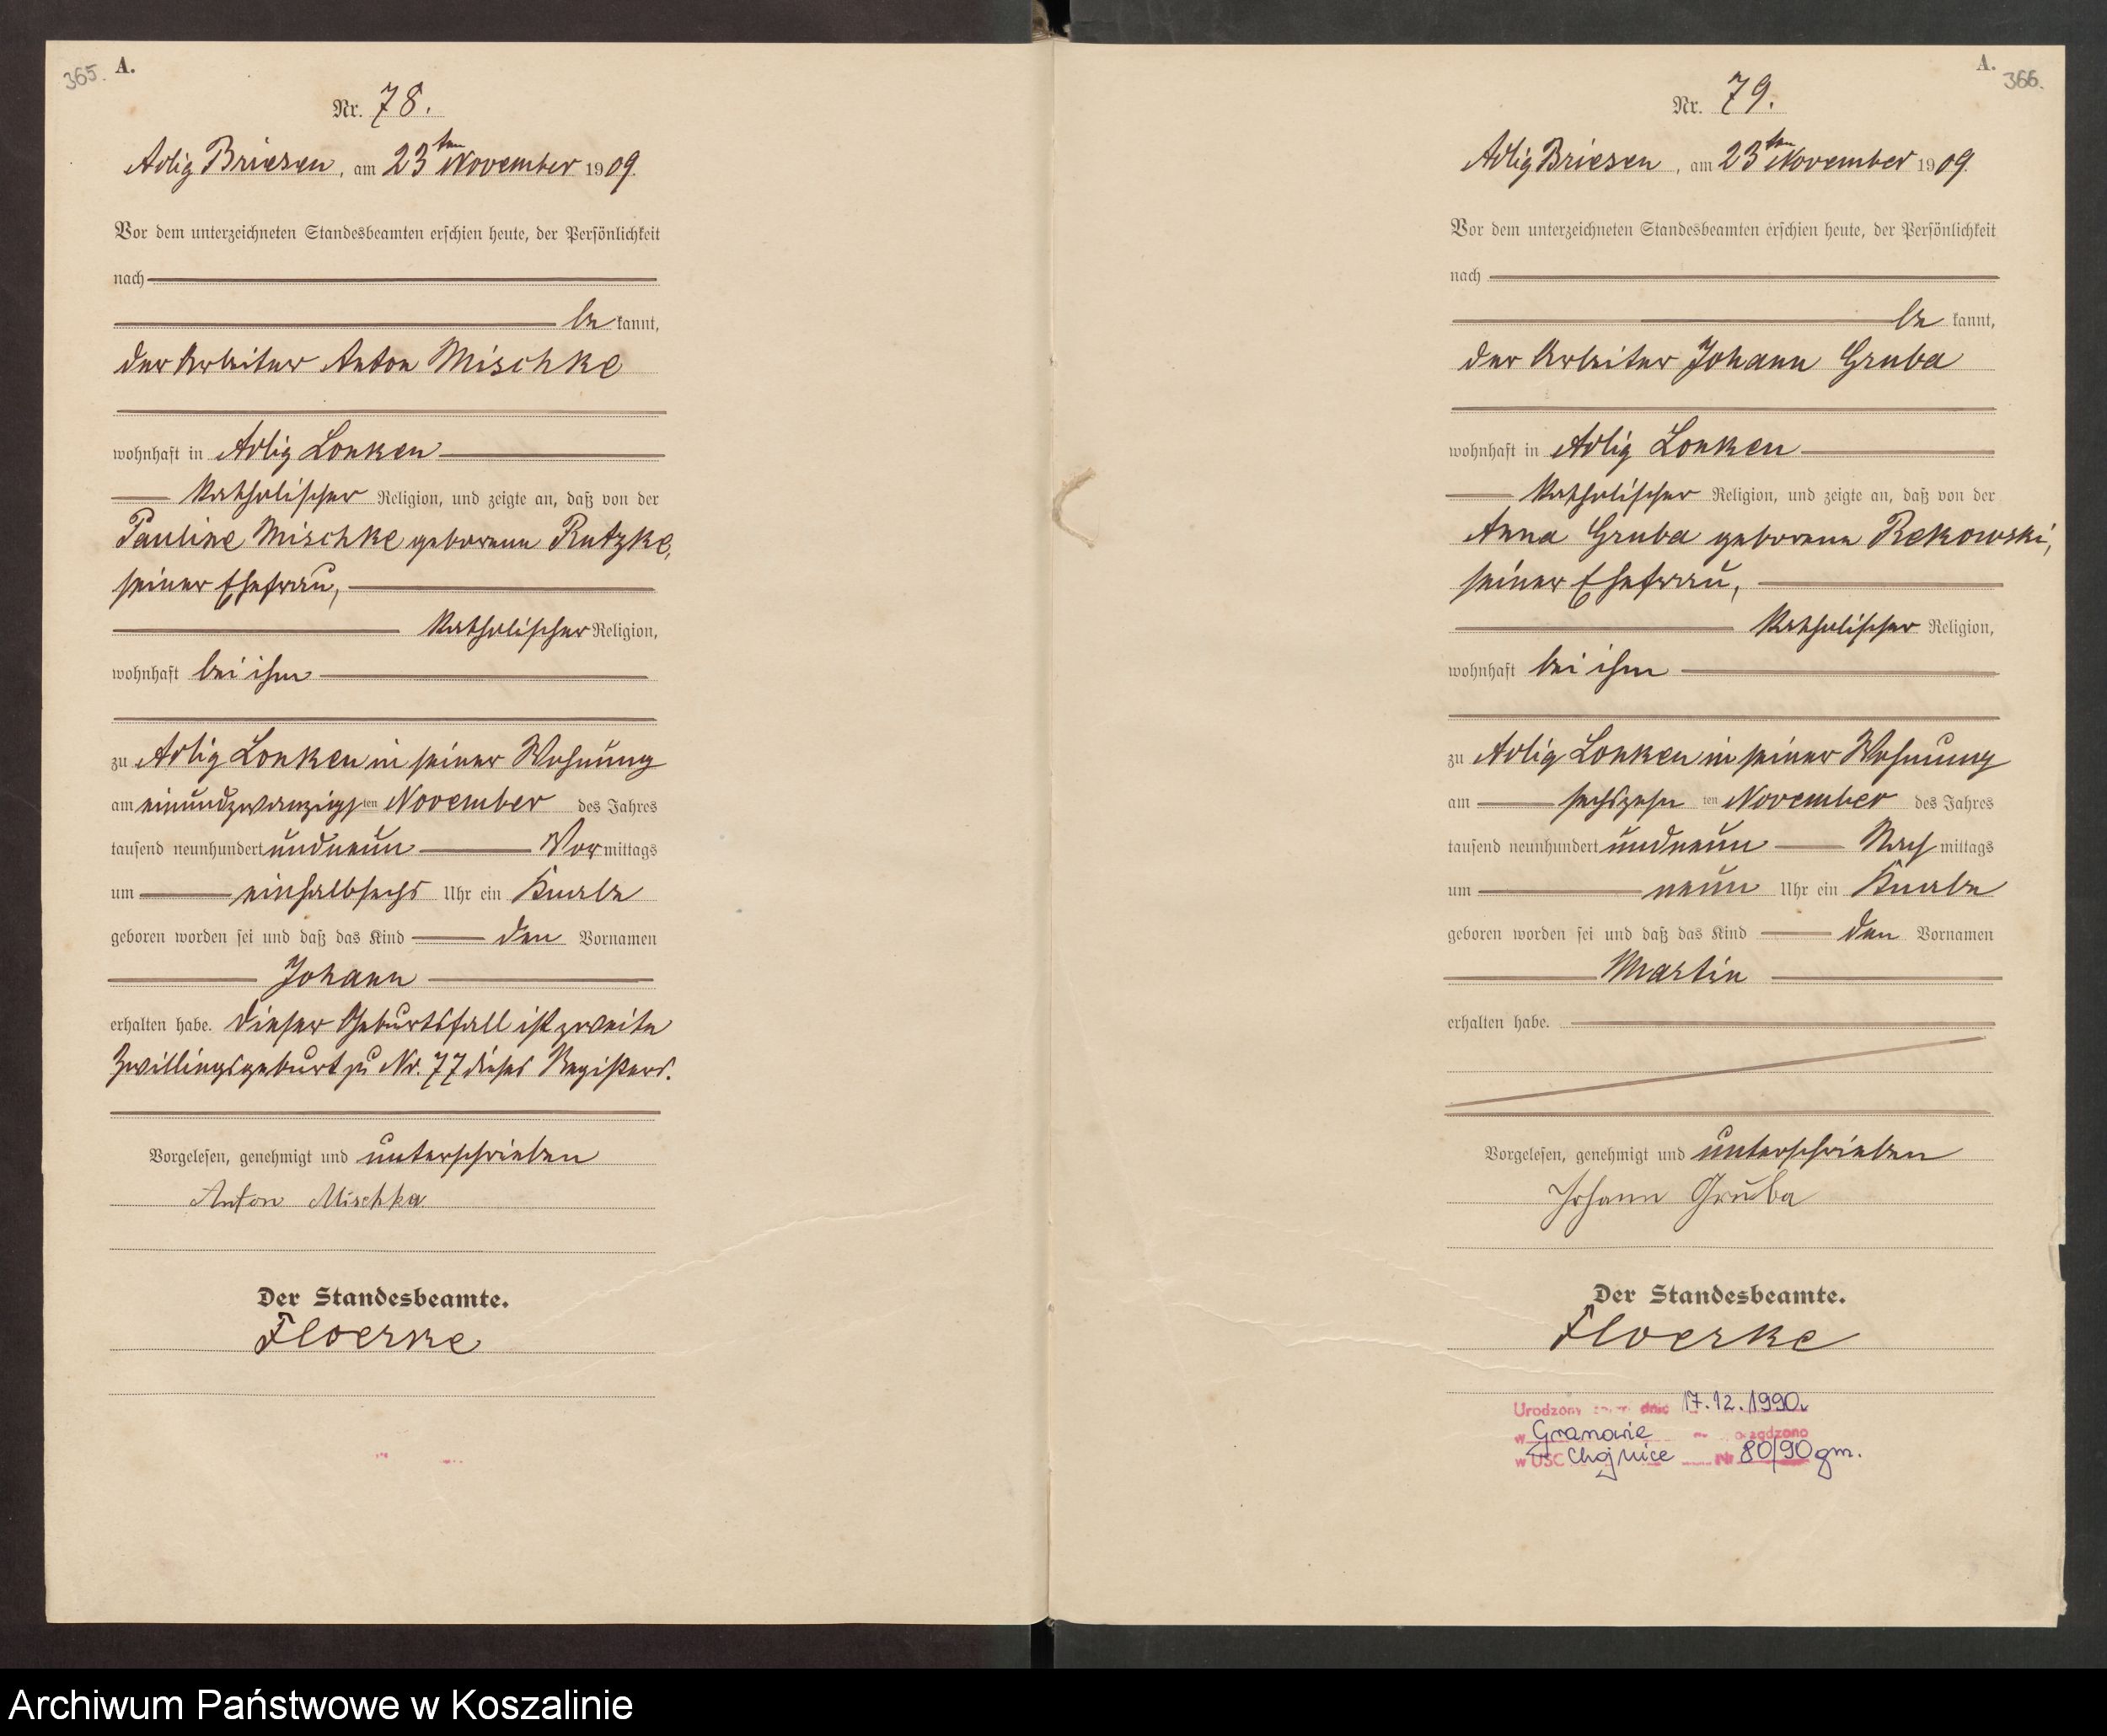 365. A.
Nr. 78.
Adlig Briesen, am 23ten November 1909.
Vor dem unterzeichneten Standesbeamten erschien heute, der Persönlichkeit
nach
be kannt,
der Arbeiter Anton Mischke
wohnhaft in Adlig Lonken
katholischer Religion, und zeigte an, daß von der
Pauline Mischke geborenen Rutzke,
seiner Ehefrau,
katholischer Religion,
wohnhaft bei ihm
zu Adlig Lonken in seiner Wohnung
am einundzwanzigsten November des Jahres
tausend neunhundert undneun Vormittags
um einhalbsechs Uhr ein Knabe
geboren worden sei und daß das Kind den Vornamen
Johann
erhalten habe. Dieser Geburtsfall ist zweite
Zwillingsgeburt zu Nr. 77 dieses Registers.
Vorgelesen, genehmigt und unterschrieben
Anton Mischka
Der Standesbeamte.
Floerke
A. 366.
Nr. 79.
Adlig Briesen, am 23ten November 1909.
Vor dem unterzeichneten Standesbeamten erschien heute, der Persönlichkeit
nach
be kannt,
der Arbeiter Johann Gruba
wohnhaft in Adlig Lonken
katholischer Religion, und zeigte an, daß von der
Anna Gruba geborenen Rekowski,
seiner Ehefrau,
katholischer Religion,
wohnhaft bei ihm
zu Adlig Lonken in seiner Wohnung
am sechszehn ten November des Jahres
tausend neunhundert undneun Nach mittags
um neun Uhr ein Knabe
geboren worden sei und daß das Kind den Vornamen
Martin
erhalten habe.
Vorgelesen, genehmigt und unterschrieben
Johann Gruba
Der Standesbeamte.
Floerke
dnia 17.12.1990r
w Granowie
w USC Chojnice Nr 80/90 gm.
Archiwum Państwowe w Koszalinie